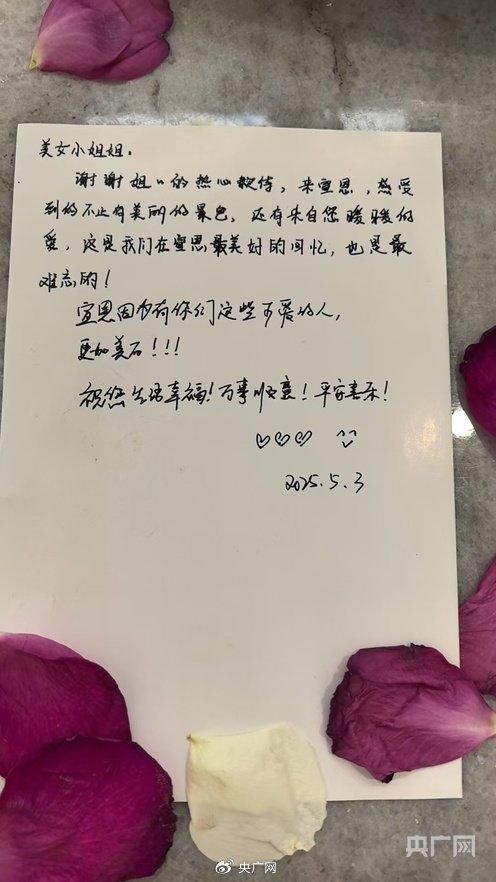 美女小姐姐:
谢谢姐〃的热心款待,来宣恩,感受
到的不止有美丽的景色,还有来自您暖暖的
爱,这是我们在宣恩最美好的回忆,也是最
难忘的!
宣恩因为有你们这些可爱的人,
更加美丽!!!
祝您生活幸福!万事顺意!平安喜乐!
♡♡♡ ^^
2025.5.3
央广网
央广网